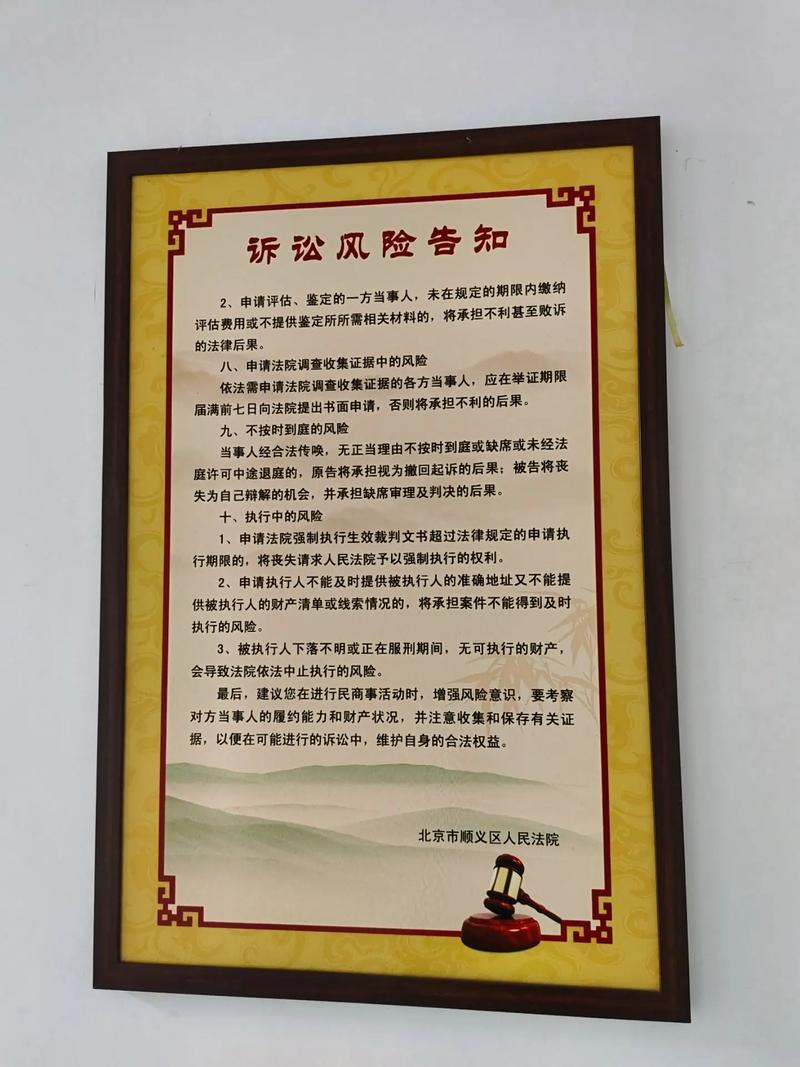 诉讼风险告知
2、申请评估、鉴定的一方当事人，未在规定的期限内缴纳
评估费用或不提供鉴定所所需相关材料的，将承担不利甚至败诉
的法律后果。
八、申请法院调查收集证据中的风险
依法需申请法院调查收集证据的各方当事人，应在举证期限
届满前七日向法院提出书面申请，否则将承担不利的后果。
九、不按时到庭的风险
当事人经合法传唤，无正当理由不按时到庭或缺席或未经法
庭许可中途退庭的，原告将承担视为撤回起诉的后果；被告将丧
失为自己辩解的机会，并承担缺席审理及判决的后果。
十、执行中的风险
1、申请法院强制执行生效裁判文书超过法律规定的申请执
行期限的，将丧失请求人民法院予以强制执行的权利。
2、申请执行人不能及时提供被执行人的准确地址又不能提
供被执行人的财产清单或线索情况的，将承担案件不能得到及时
执行的风险。
3、被执行人下落不明或正在服刑期间，无可执行的财产，
会导致法院依法中止执行的风险。
最后，建议您在进行民商事活动时，增强风险意识，要考察
对方当事人的履约能力和财产状况，并注意收集和保存有关证
据，以便在可能进行的诉讼中，维护自身的合法权益。
北京市顺义区人民法院